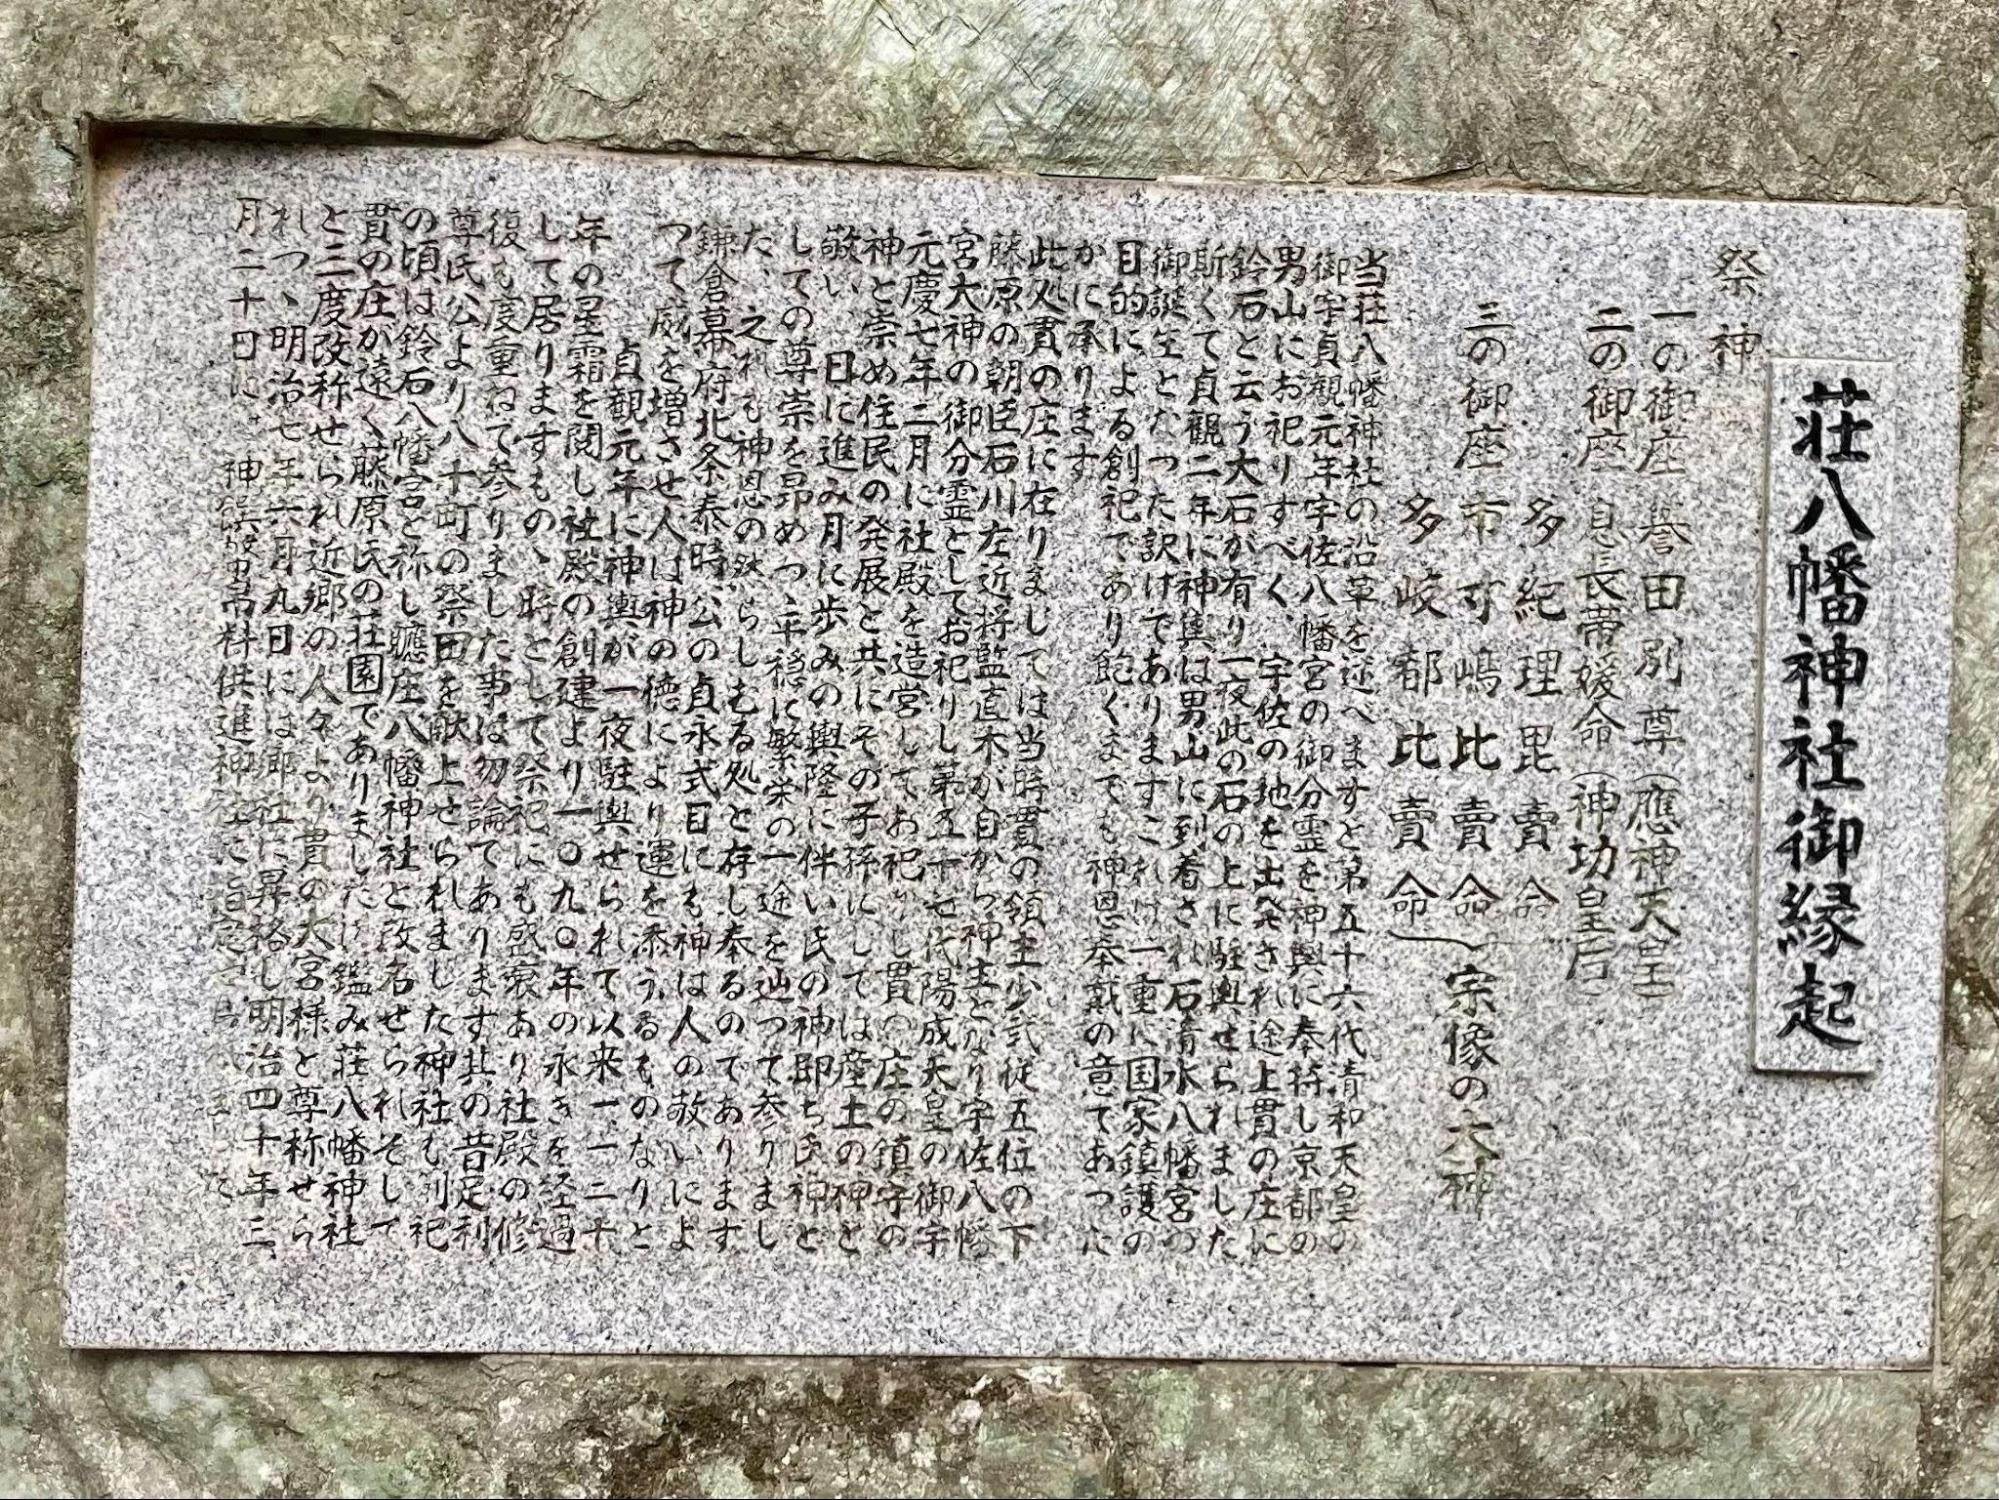 荘八幡神社御縁起
祭神
一の御座 誉田別尊(應神天皇)
二の御座 息長帯媛命(神功皇后)
多紀理毘賣命
三の御座 市寸嶋比賣命 宗像の大神
多岐都比賣命
当荘八幡神社の沿革を述べますと第五十六代清和天皇の
御宇貞観元年宇佐八幡宮の御分霊を神輿に奉持し京都の
男山にお祀りすべく、宇佐の地を出発され途上貫の庄に
鈴石と云う大石が有り一夜此の石の上に駐輿せられました
斯くて貞観二年に神輿は男山に到着され石清水八幡宮の
御誕生となった訳けでありますこれは一重に国家鎮護の
目的による創祀であり飽くまでも神恩奉戴の意であった
かに承ります
此処貫の庄に在りましては当時貫の領主少弐従五位の下
藤原の朝臣石川左近将監直木が自から神主となり宇佐八幡
宮大神の御分霊としてお祀りし第五十七代陽成天皇の御宇
元慶七年二月に社殿を造営してお祀りし貫の庄の鎮守の
神と崇め住民の発展と共にその子孫にしては産土の神と
敬い、日に進み月に歩みの輿隆に伴い氏の神即ち氏神と
しての尊崇を昂めつゝ平穏に繁栄の一途を辿って参りまし
た、之れも神恩の然らしむる処と存し奉るのであります
鎌倉幕府北条泰時公の貞永式目にも神は人の敬いによ
って威を増させ人は神の徳により運を添うるものなりと
貞観元年に神輿が一夜駐輿せられて以来一、一二十
年の星霜を閲し社殿の創建より一〇九〇年の永きを経過
して居りますもの、時として祭祀にも盛衰あり社殿の修
復も度重ねて参りました事は勿論であります其の昔足利
尊氏公より八十町の祭田を献上せられました神社も列祀
の頃は鈴石八幡宮と称し聽座八幡神社と改名せられそして
貫の庄が遠く藤原氏の荘園でありましたに鑑み荘八幡神社
と三度改称せられ近郷の人々より貫の大宮様と尊称せら
れつゝ明治七年六月九日には郷社に昇格し明治四十年三
月二十日に神饌幣帛料供進神社に指定